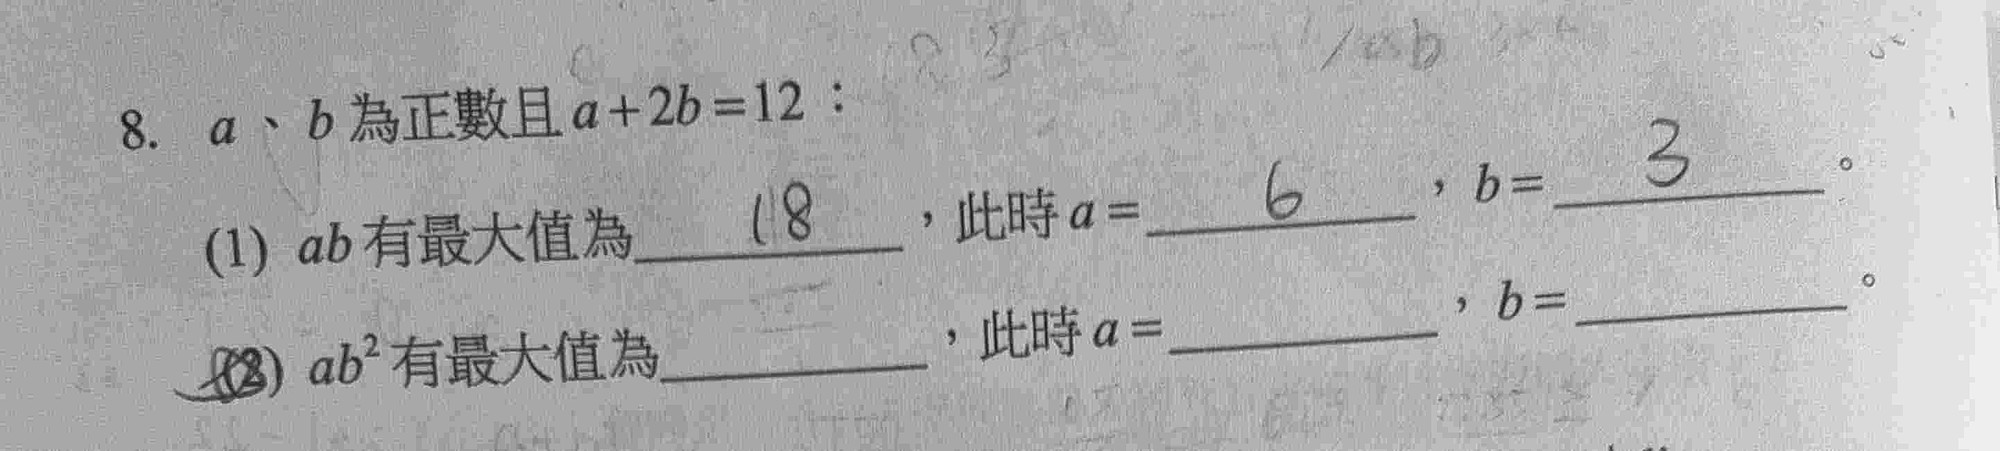 8. a、b為正數且a+2b=12：
(1) ab有最大值為 18 ，此時a= 6 ，b= 3 。
(2) ab²有最大值為______，此時a=______，b=______。